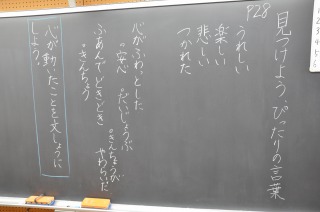 P28
見つけよう、ぴったりの言葉
うれしい
楽しい
悲しい
つかれた
心がふわっとした
◦安心 ◦だいじょうぶ
ふあんでどきどき ◦きんちょうが
◦きんちょう やわらいだ
心が動いたことを文しょうに
しよう。